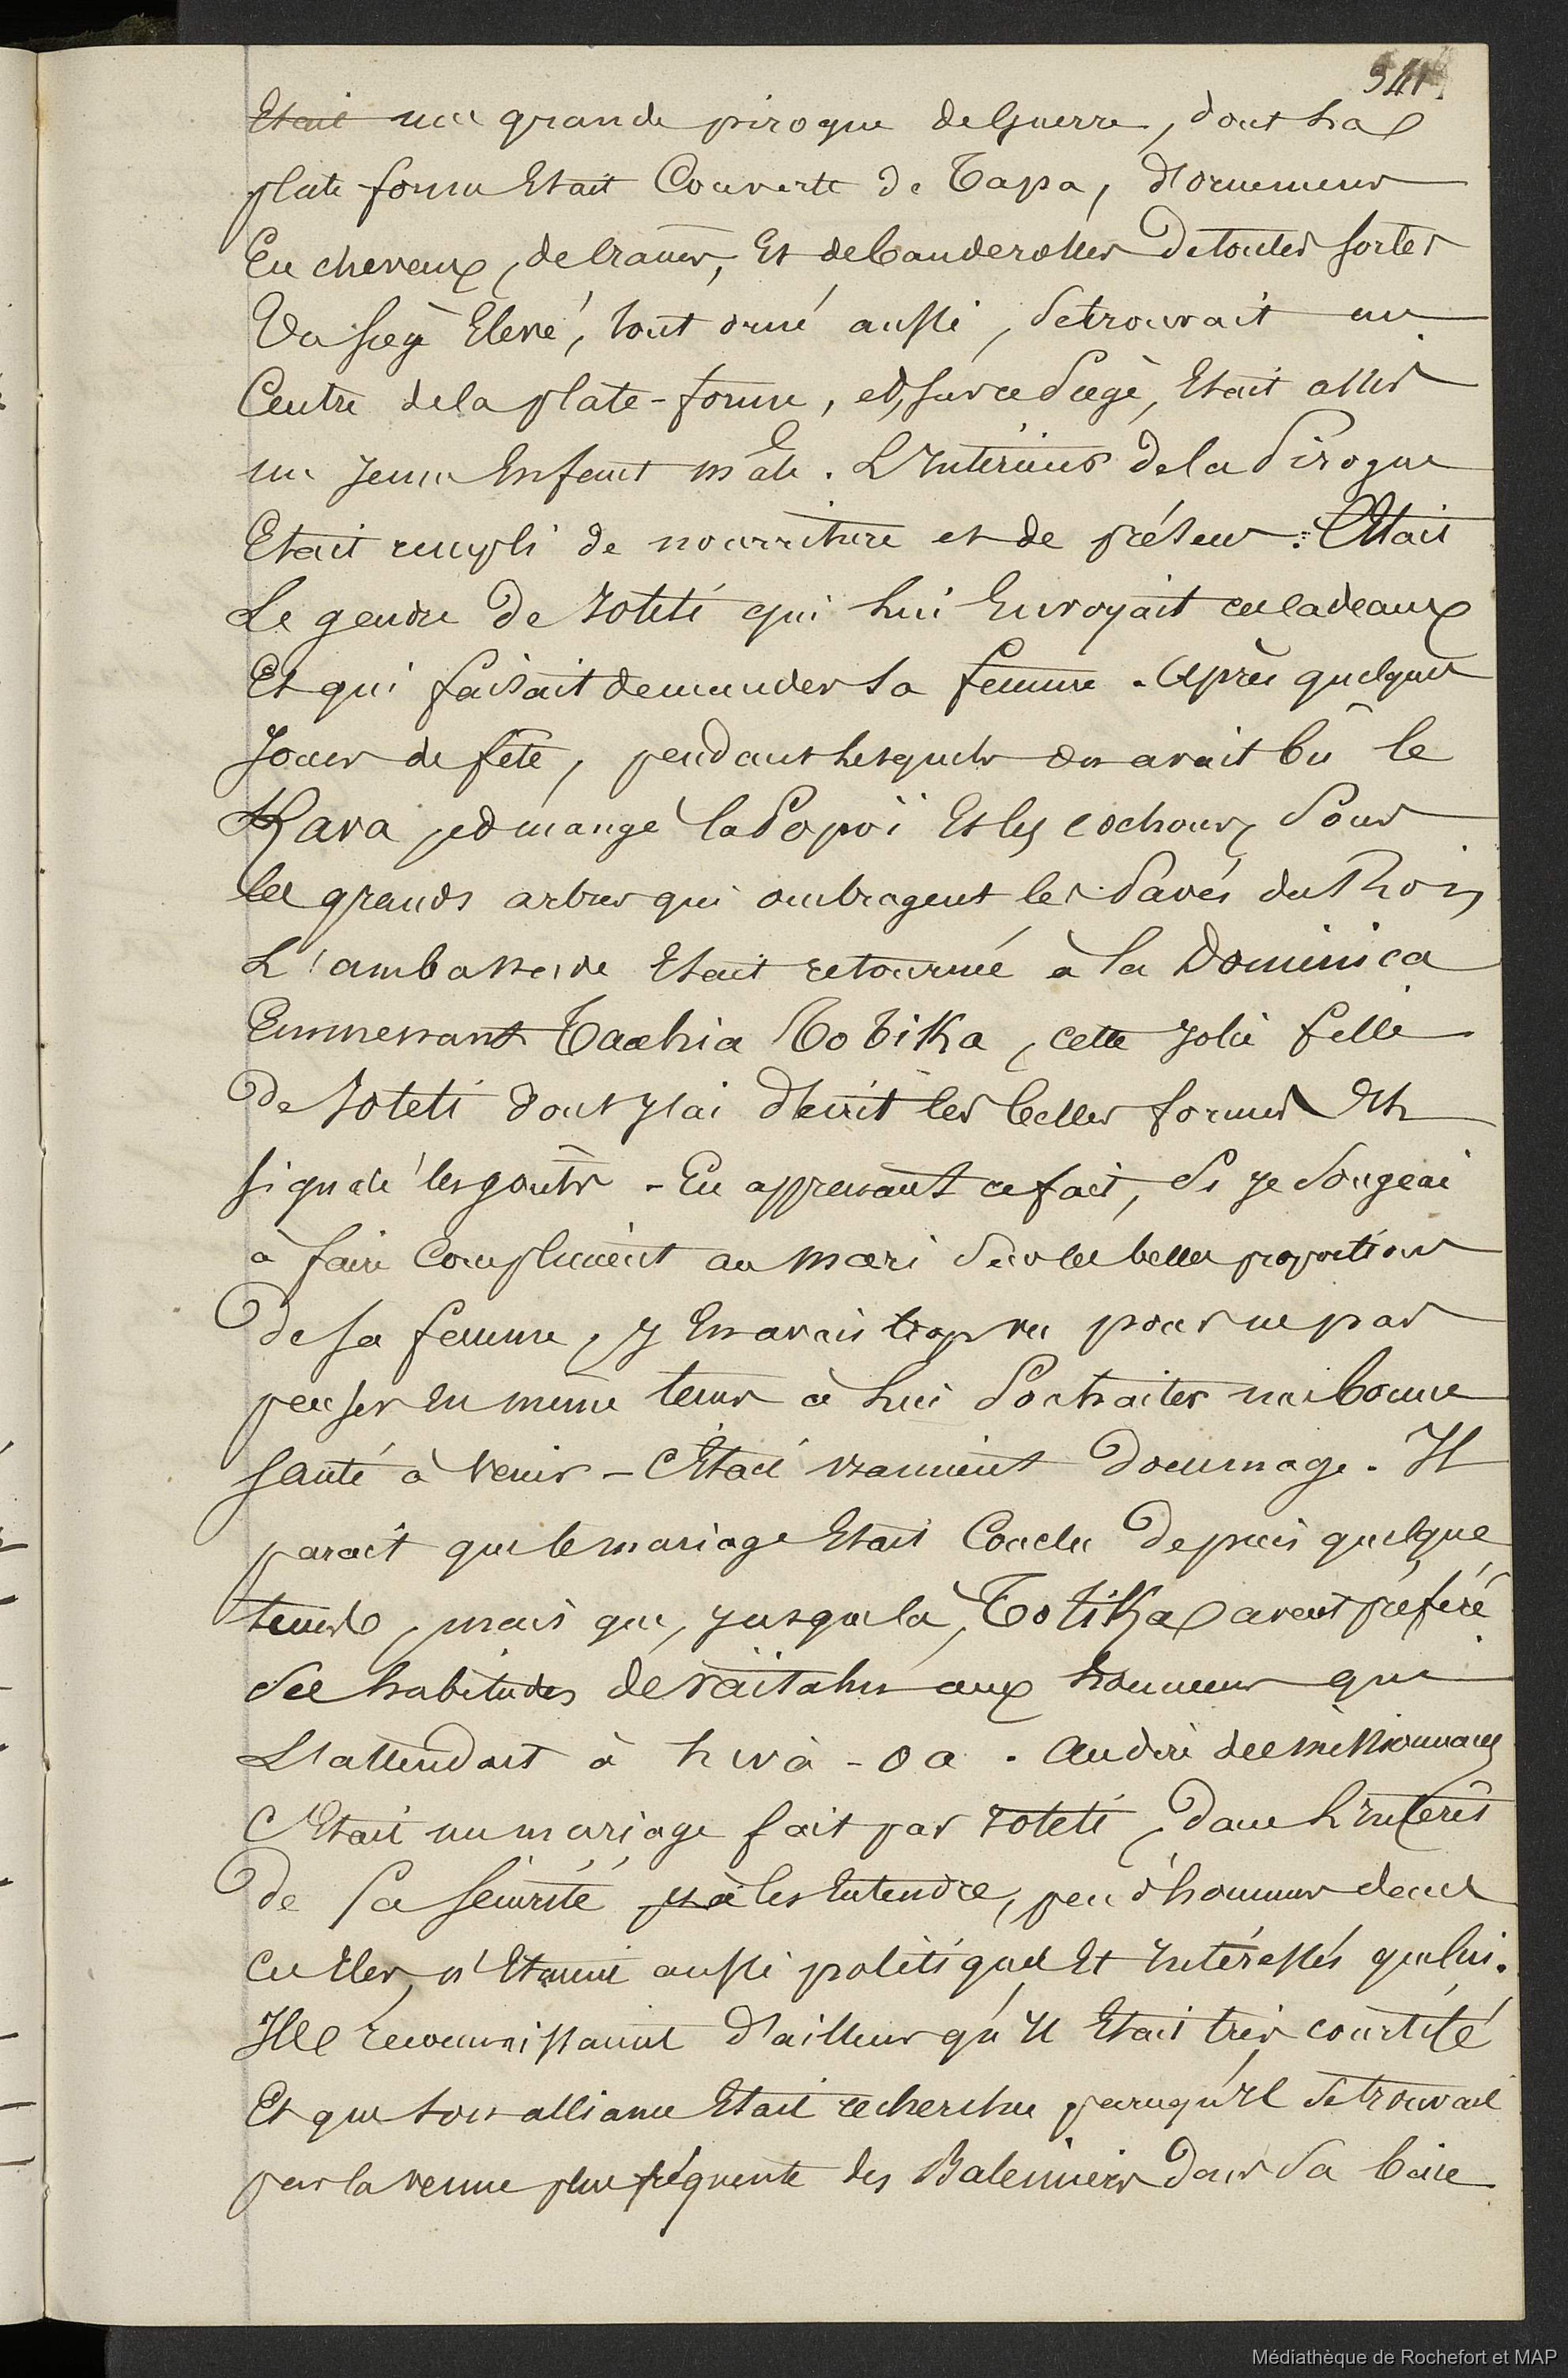 341
Etait une grande pirogue de guerre, dont la
plate-forme Etait Couverte de Tapa, d'ornemens
En cheveux, de cranes, Et de banderolles de toutes sortes
Un siege Elevé, tout orné aussi, se trouvait au
Centre de la plate-forme, et, sur ce siege, Etait assis
un jeune Enfant mâle. L'Interieur de la Pirogue
Etait rempli de nourriture et de présens. C'Etait
Le gendre de Iotété qui lui Envoyait ces cadeaux
Et qui faisait demander sa femme. Après quelques
Jours de fête, pendant lesquels on avait bû le
Kava, et mangé la Popoï Et les cochons, sous
les grands arbres qui ombragent les Pavés du Roi,
L'ambassade Etait retournée à la Dominica
Emmenant Taahia Totika, cette jolie fille
de Iotété dont j'ai décrit les belles formes Et
signalé les goûts - En apprenant ce fait, si je songeai
à faire Compliment au mari sur les belles proportions
de sa femme, j'En avais trop vu pour ne pas
penser En même tems à lui souhaiter une bonne
santé à venir - C'Etait vraiment dommage. Il
parait que le mariage Etait Conclu depuis quelque
tems, mais que, jusques là, Totika avait préféré
ses habitudes de Vaitahu aux honneurs qui
L'attendait à hiva-oa. Au dire des missionnaires
C'Etait un mariage fait par Iotété, dans L'interêt
de sa sécurité, et à les Entendre, peu d'hommes dans
ces Iles, n'Etaient aussi politiques Et Intéressés que lui.
Ils reconnaissaient d'ailleurs qu'il Etait très courtisé
Et que son alliance Etait recherchée parcequ'il se trouvait
par la venue plus fréquente des Baleiniers dans sa baie
Médiathèque de Rochefort et MAP